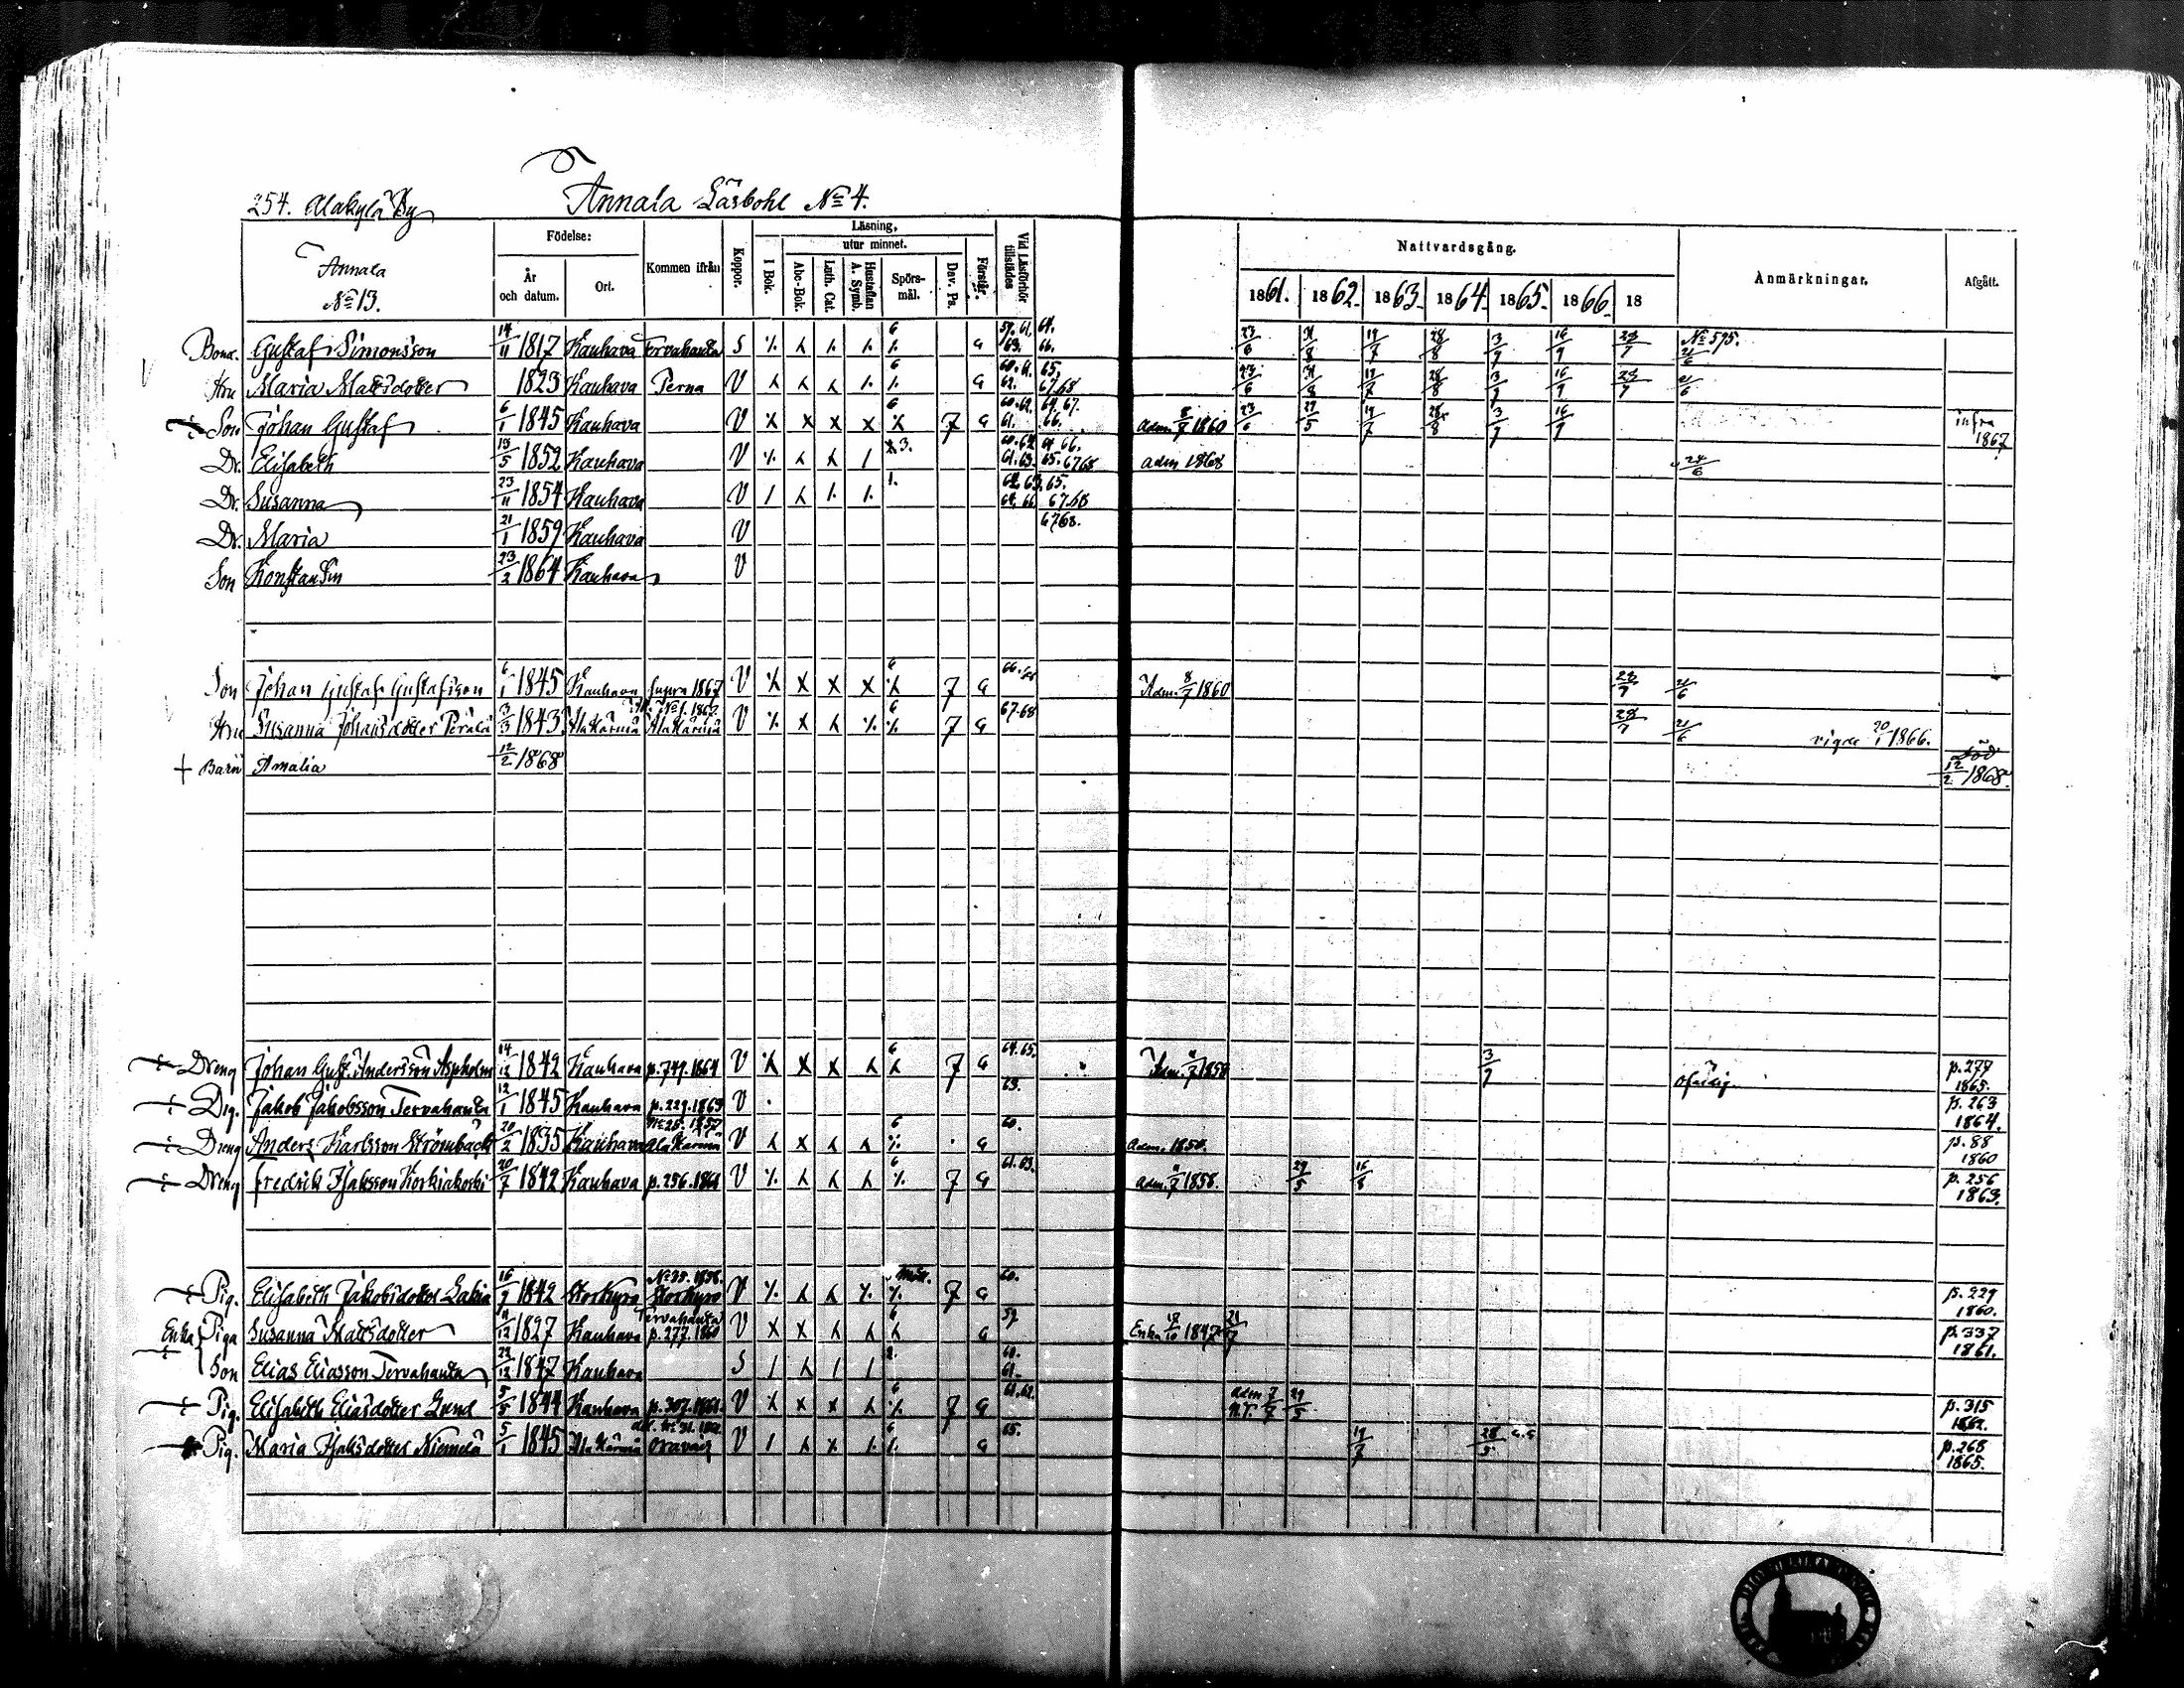 254. Alakylä By Annala Läsbohl No 4.
Annala No 13.
Födelse: År och datum. Ort. Kommen ifrån Koppor. Läsning, I Bok. utur minnet. Abc-Bok. Luth. Cat. Hustaflan A. Symb. Spörs-mål. Dav. Ps. Förstår. Vid Läsförhör tillstädes Nattvardsgång. 1861. 1862. 1863. 1864. 1865. 1866. 18 Anmärkningar. Afgått.
Bond. Gustaf Simonsson 14/11 1817 Kauhava Tervahauta S 6 a 23/6 31/8 19/7 28/8 3/9 16/9 28/7 No 595. 21/6
Hru Maria Mattsdotter 1823 Kauhava Perna V 6 a 23/6 31/8 19/7 28/8 3/9 16/9 28/7 21/6
Son Johan Gustaf 6/1 1845 Kauhava V 6 7 a Adm. 8/7 1860 23/6 29/5 19/7 28/8 3/9 16/9 infra 1867
Dr. Elisabeth 13/5 1852 Kauhava V 3. adm 1868 24/6
Dr. Susanna 23/11 1854 Kauhava V 1.
Dr. Maria 21/1 1859 Kauhava V 6768.
Son Konstantin 23/2 1864 Kauhava V
Son Johan Gustaf Gustafsson 6/1 1845 Kauhava supra 1867 V 6 7 a Adm. 8/7 1860 28/7 21/6
Hru Susanna Johansdotter Perälä 3/3 1843 Ala Kärmä No 1. 1867 Ala Kärmä V 6 7 a 67.68 28/7 21/6 vigde 20/1 1866.
Barn Amalia 12/2 1868 död 12/2 1868.
Dreng Johan Gust. Andersson Aspholm 14/12 1842 Kauhava p.749.1864 V 6 7 a 64.65. Adm. 1858 3/9 ofärdig. p.277 1865.
Drg. Jakob Jakobsson Tervahauta 12/1 1845 Kauhava p.229.1863 V 63. p.263 1864.
Dreng Anders Karlsson Strömbäck 20/2 1835 Kauhava Ala Kärmä V 6 a 60. Adm. 1850. p.88 1860
Dreng Fredrik Isaksson Korkiakoski 20/7 1842 Kauhava p.256.1861 V 6 7 a 61.63. adm. 1858. 29/5 16/8 p.256 1863.
Pig. Elisabeth Jakobsdotter Lakia 16/9 1842 Storkyro No 39. 1858. Storkyro V 7 a 60. p.229 1860.
Enka Piga Susanna Mattsdotter 1827 Kauhava Tervahauta p.277.1860 V 6 a 59. Enka 1847 21/7 p.337 1861.
Son Elias Eliasson Tervahauta 23/12 1847 Kauhava S 2. 60. 61.
Pig. Elisabeth Eliasdotter Lund 5/5 1844 Kauhava p.307.1861. V 6 7 a 61.62. adm 7/7 29/5 p.315 1862.
Pig. Maria Isaksdotter Niemelä 5/1 1845 Ala Kärmä Oravais V 6 a 65. 19/7 28/5 p.268 1865.